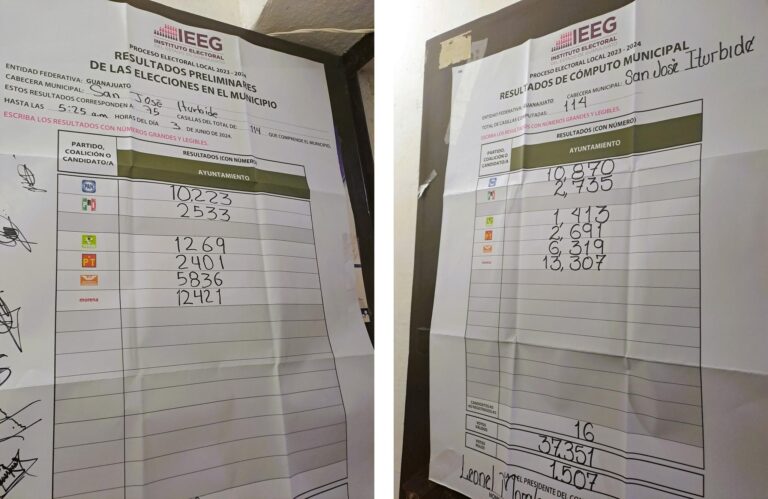 IEEG
INSTITUTO ELECTORAL
PROCESO ELECTORAL LOCAL 2023 - 2024
RESULTADOS PRELIMINARES
DE LAS ELECCIONES EN EL MUNICIPIO
ENTIDAD FEDERATIVA: GUANAJUATO
CABECERA MUNICIPAL: San José Iturbide
ESTOS RESULTADOS CORRESPONDEN A 95 CASILLAS DEL TOTAL DE: 114 QUE COMPRENDE EL MUNICIPIO.
HASTA LAS 5:25 a.m. HORAS DEL DÍA 3 DE JUNIO DE 2024.
ESCRIBA LOS RESULTADOS CON NÚMEROS GRANDES Y LEGIBLES.
PARTIDO, COALICIÓN O CANDIDATO/A
RESULTADOS (CON NÚMERO)
AYUNTAMIENTO
PAN 10,223
PRI 2533
1269
PT 2401
5836
morena 12421
IEEG
INSTITUTO ELECTORAL
PROCESO ELECTORAL LOCAL 2023 - 2024
RESULTADOS DE CÓMPUTO MUNICIPAL
ENTIDAD FEDERATIVA: GUANAJUATO CABECERA MUNICIPAL: San José Iturbide
TOTAL DE CASILLAS COMPUTADAS: 114
ESCRIBA LOS RESULTADOS CON NÚMEROS GRANDES Y LEGIBLES.
PARTIDO, COALICIÓN O CANDIDATO/A
RESULTADOS (CON NÚMERO)
AYUNTAMIENTO
10,870
2,735
1,413
2,691
6,319
morena 13,307
16
37,351
1,507
Leonel
EL PRESIDENTE DEL